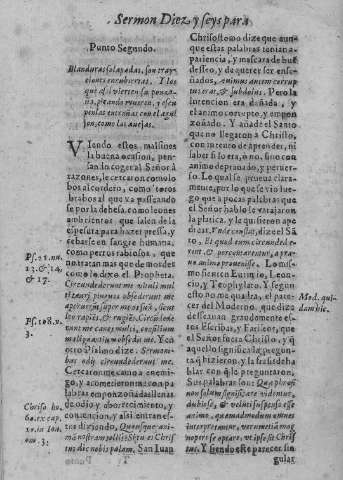 Sermon Diez y seys para
Punto Segundo.
Blanduras solapadas, son tray-
ciones encubiertas. Y los
que assi vierten su ponço-
ña,
peutas entrañas con el agui-
jon, como las auejas.
Viendo estos malsines
la buena ocasion, pen-
san in coger al Señor à
razones, le cercaron como lo
bos al cordero, como toros
brabos al que va passeando
se por la dehesa, como leones
ambrientos que salen de la
espesura para hazer pressa, y
cebarse en sangre humana,
como perros rabiosos, que
no tratan mas que de morder
como lo dixo el Propheta.
Circundederunt me vituli mul
ti, tauri pingues obsederunt me
aperuerunt super me os suũ, sicut
leo rapiẽs, & rugiẽs. Circũdede
runt me canes multi, concilium
malignantium obsedit me. Y en
otro Psalmo dize. Sermonibus
odij circundederunt me.
Cercaronme como a enemi-
go, y acometieronme con pa
labras emponzoñadas llenas
de odio y aborrecimiento, y
contencion; y assi entran es-
tos diziendo, Quousque ani-
mã nostram tollis? Si tu es Chris
tus dic nobis palam. San Iuan
Chrisostomo dize que aun-
que estas palabras tenian a-
pariencia, y mascara de bue
desseo, y de querer ser ense-
ñados, animus autem corrup
tus erat, & subdolus. Pero la
intencion era dañada, y
el animo corrupto, y empon
zoñado. Y añade el Santo
que no llegaron à Christo,
con intento de aprender, ni
saber si lo era, ò no, sino con
animo depravado, y peruer-
so. Lo qual se prueua clara-
mente, por lo que se vio lue-
go que à pocas palabras que
el Señor hablò se atajaron
la platica, y le quisieron ape
drear. Vnde constat, dize el Sã
to. Et quod eum circunded e-
runt, & percontarentur, a pra-
ua animo processisse. Lo mis-
mo sienten Eutimio, Leon-
cio, y Teophylato. Y segun
esto no me quadra, el pare-
cer del Moderno, que dize
desseauan grandemente es-
tos Escribas, y Fariseos, que
el Señor fuera Christo, y q̃
aquello significa la pregun-
ta q̃ hizieron, y la fuerça de ha
blar con q̃ lo preguntaron.
Sus palabras son: Quæ phrasis
non solum significat videntur,
dubiosè, & veluti suspensò esse
animo, quemadmodum omnes
interpretantur, verum etiã mag
nopere se optare, vt ipse sit Chris
tus. Y siendo este parecer sin
gular
Ps. 21. nu.
13. & 14.
& 17.
Ps. 108. v.
3.
Chriso. ho.
60. ex cap.
xo. in Ioa.
tom. 3.
Mod. qui-
dam hic.